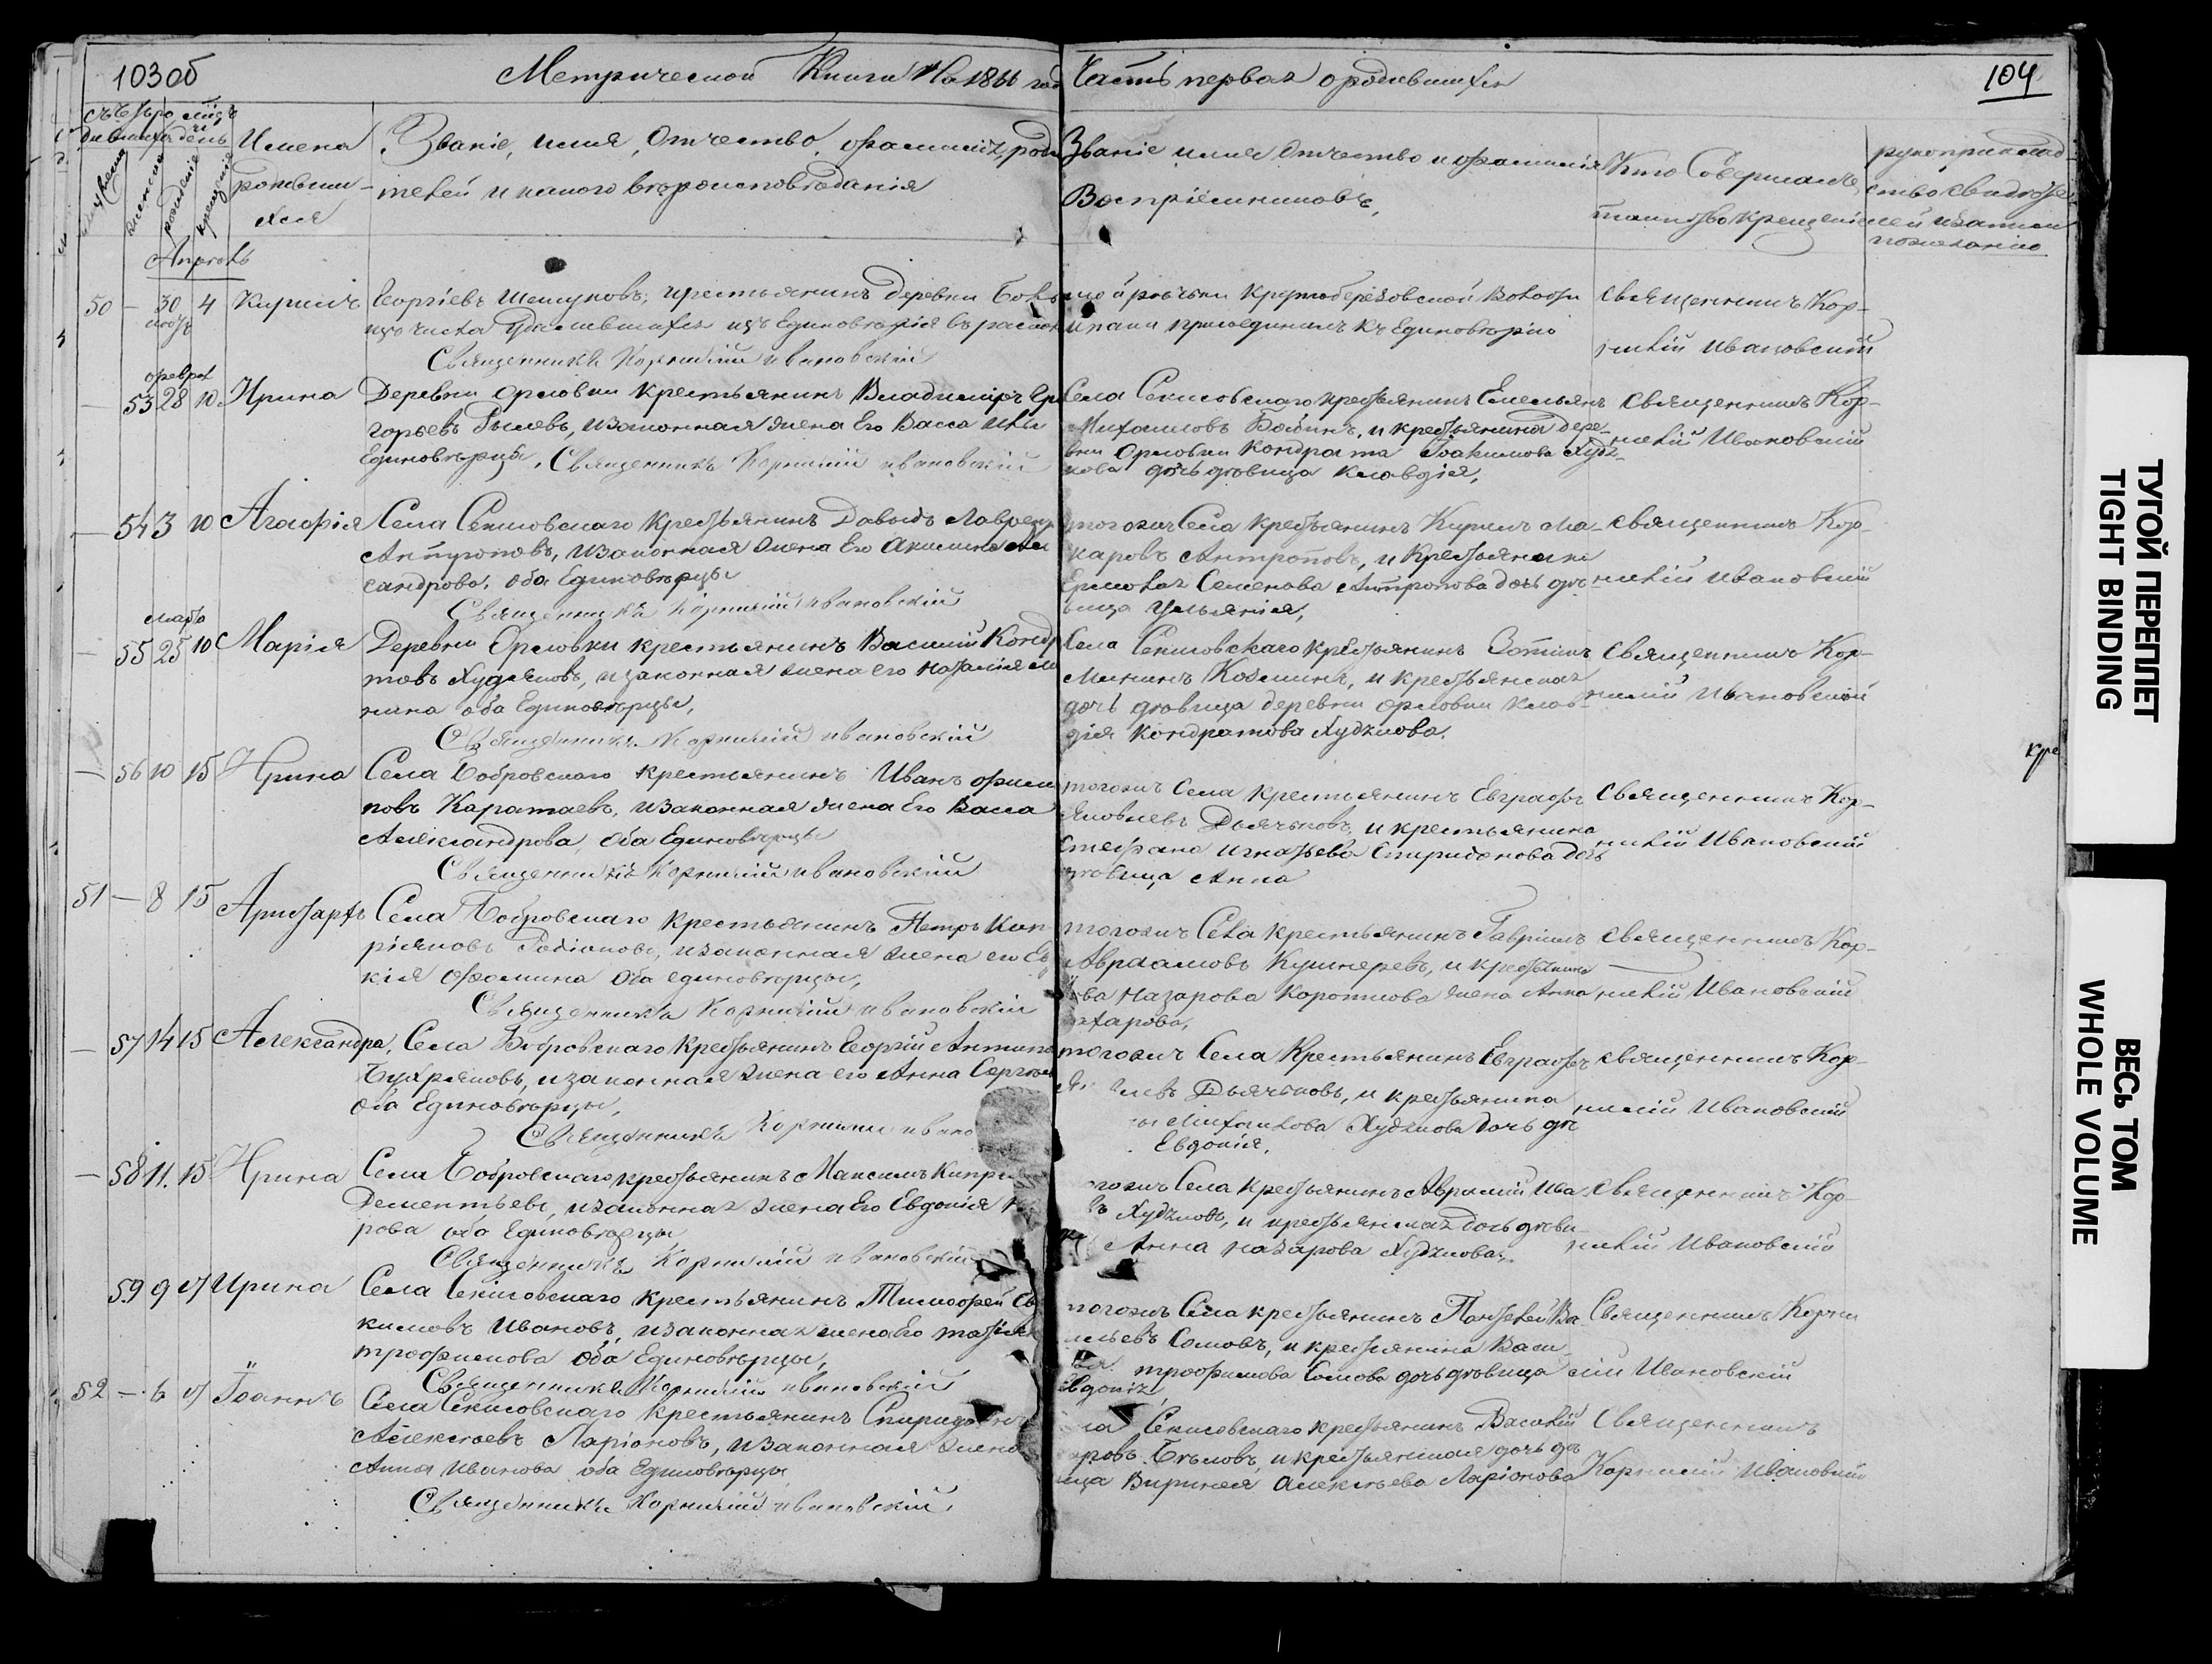 103об
Метрической Книги На 1866 год
Часть первая о родившихся
104
Имена родившихся
Званіе, имя, Отчество, фамилія, роди
телей и какого вѣроисповѣданія
Званіе имя Отчество и фамилія
Воспріемниковъ,
Кто Совершалъ
таинство крещенія
рукоприклад-
ство свидѣте
лей записи
по желанію
Апрель
50 — 30 4 Кирилъ
Георгіевъ Шешуковъ, крестьянинъ деревни
изъ числа удалившихся изъ Единовѣрія въ раскол
Священникъ Корнилій Ивановскій
волости
присоединилъ къ Единовѣрію
Священникъ Кор-
нилій Ивановскій
феврал
— 53 28 10 Ирина
Деревни Орловки крестьянинъ Владиміръ Гри
горьевъ Рылевъ, и законная жена Его Васса
Единовѣрцы, Священникъ Корнилій Ивановскій
Села Секисовскаго крестьянинъ Емельянъ
Михаиловъ Бабинъ, и крестьянина дере-
вни Орловки Кондрата Іоакимова Худя-
кова дочь девица Клавдія,
Священникъ Кор-
нилій Ивановскій
— 54 3 10 Агафія
Села Секисовскаго крестьянинъ Давыдъ Лаврен
Антроповъ, и законная жена Его Акилина Алек
сандрова, оба Единовѣрцы
Священникъ Корнилій Ивановскій
тогожъ Села крестьянинъ Кирилъ Ма-
каровъ Антроповъ, и Крестьянина
Ермолая Семенова Антропова дочь дѣ-
вица Ульянія,
Священникъ Кор-
нилій Ивановскій
мартъ
— 55 25 10 Марія
Деревни Орловки крестьянинъ Василій Кондр
товъ Худяковъ, и законная жена его Наталія
нина оба Единовѣрцы,
Священникъ Корнилій Ивановскій
Села Секисовскаго крестьянинъ Фотій
Мининъ Козминъ, и крестьянская
дочь дѣвица деревни Орловки Клав-
дія Кондратова Худякова.
Священникъ Кор-
нилій Ивановскій
— 56 10 15 Ирина
Села Бобровскаго крестьянинъ Иванъ Фили
повъ Каратаевъ, и законная жена Его Васса
Александрова, оба Единовѣрцы
Священникъ Корнилій Ивановскій
тогожъ Села крестьянинъ Евграфъ
Яковлевъ Дьячковъ, и крестьянина
Стефана Игнатьева Спиридонова дочь
дѣвица Анна
Священникъ Кор-
нилій Ивановскій
кре
51 — 8 15 Аристархъ
Села Бобровскаго крестьянинъ Петръ Кип
ріяновъ Родіоновъ, и законная жена его Ев
кія Фомина оба единовѣрцы,
Священникъ Корнилій Ивановскій
тогожъ Села крестьянинъ Гавріилъ
Авраамовъ Кушнеревъ, и крестьянина
Назарова Короткова жена Анна
Захарова,
Священникъ Кор-
нилій Ивановскій
— 57 14 15 Александра,
Села Бобровскаго крестьянинъ Георгій Антипо
Бухряковъ, и законная жена его Анна Сергѣе
оба Единовѣрцы,
Священникъ Корнилій Ивано
тогожъ Села Крестьянинъ Евграфъ
левъ Дьячковъ, и крестьянина
Михаилова Худякова дочь дѣ
Евдокія,
Священникъ Кор-
нилій Ивановскій
— 58 11. 15 Ирина
Села Бобровскаго крестьянинъ Максимъ Кипри
Дементьевъ, и законная жена Его Евдокія
рова оба Единовѣрцы
Священникъ Корнилій Ивановскій
тогожъ Села крестьянинъ Аврамій Ива
въ Худяковъ, и крестьянская дочь дѣви
Анна Назарова Худякова.
Священникъ Кор-
нилій Ивановскій
59 9 17 Ирина
Села Секисовскаго крестьянинъ Тимофей
кимовъ Ивановъ, и законная жена Его
трофимова оба Единовѣрцы,
Священникъ Корнилій Ивановскій
тогожъ Села крестьянинъ Пантелей Ва
сильевъ Сомовъ, и крестьянина Васи
трофимова Сомова дочь дѣвица
Евдокія
Священникъ Корни
лій Ивановскій
52 — 6 17 Іоаннъ
Села Секисовскаго крестьянинъ Спиридонъ
Алексѣевъ Ларіоновъ, и законная жена
Анна Иванова оба Единовѣрцы
Священникъ Корнилій Ивановскій,
Секисовскаго крестьянинъ Василій
Бѣловъ, и крестьянская дочь дѣ
вица Виринея Алексѣева Ларіонова
Священникъ
Корнилій Ивановскій
ТУГОЙ ПЕРЕПЛЕТ
TIGHT BINDING
ВЕСЬ ТОМ
WHOLE VOLUME